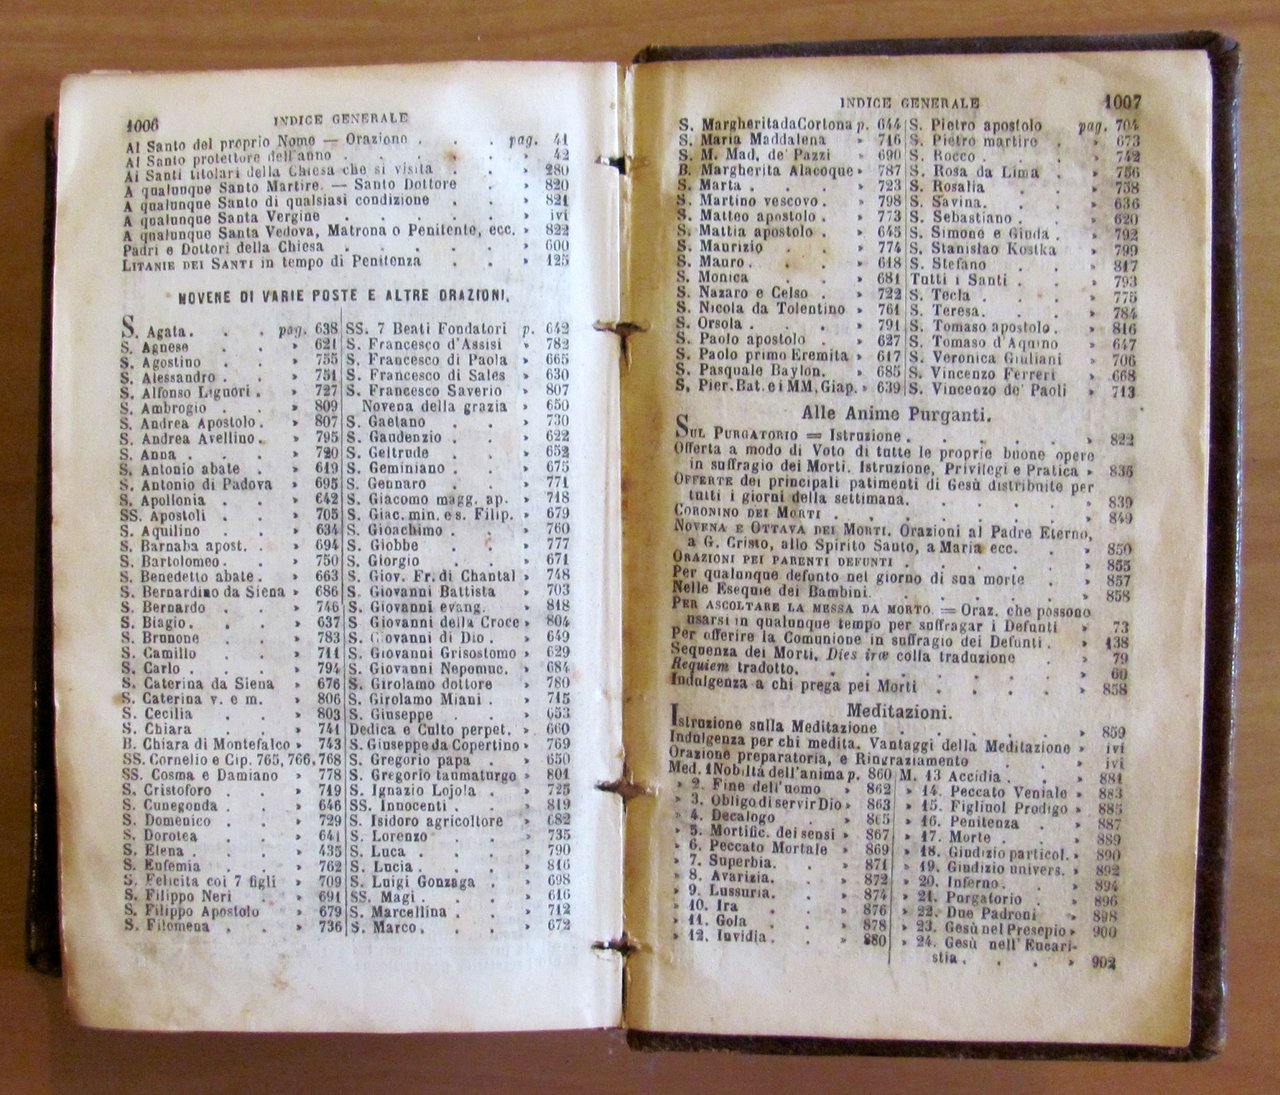 1006
INDICE GENERALE
Al Santo del proprio Nome — Orazione . . . pag. 41
Al Santo protettore dell'anno . . . . . » 42
Ai Santi titolari della Chiesa che si visita . . » 280
A qualunque Santo Martire. — Santo Dottore . . » 820
A qualunque Santo di qualsiasi condizione . . » 821
A qualunque Santa Vergine . . . . . » ivi
A qualunque Santa Vedova, Matrona o Penitente, ecc. » 822
Padri e Dottori della Chiesa . . . . . » 600
LITANIE DEI SANTI in tempo di Penitenza . . » 125
NOVENE DI VARIE POSTE E ALTRE ORAZIONI.
S. Agata. . . pag. 638
S. Agnese . . » 621
S. Agostino . . » 755
S. Alessandro . . » 751
S. Alfonso Liguori . . » 727
S. Ambrogio . . » 809
S. Andrea Apostolo . » 807
S. Andrea Avellino. . » 795
S. Anna . . . » 720
S. Antonio abate . » 619
S. Antonio di Padova » 695
S. Apollonia . . » 642
SS. Apostoli . . » 705
S. Aquilino . . » 634
S. Barnaba apost. . » 694
S. Bartolomeo. . » 750
S. Benedetto abate. . » 663
S. Bernardino da Siena » 686
S. Bernardo . . » 746
S. Biagio. . . » 637
S. Brunone . . » 783
S. Camillo . . » 711
S. Carlo . . . » 794
S. Caterina da Siena » 676
S. Caterina v. e m. » 806
S. Cecilia . . » 803
S. Chiara . . » 741
B. Chiara di Montefalco » 743
SS. Cornelio e Cip. 765, 766, 768
SS. Cosma e Damiano » 778
S. Cristoforo . . » 719
S. Cunegonda . . » 646
S. Domenico . . » 729
S. Dorotea . . » 641
S. Elena . . . » 435
S. Eufemia . . » 762
S. Felicita coi 7 figli » 709
S. Filippo Neri . » 691
S. Filippo Apostolo » 679
S. Filomena . . » 736
SS. 7 Beati Fondatori p. 642
S. Francesco d'Assisi » 782
S. Francesco di Paola » 665
S. Francesco di Sales » 630
S. Francesco Saverio » 807
Novena della grazia » 650
S. Gaetano . . » 730
S. Gaudenzio . . » 622
S. Geltrude . . » 652
S. Geminiano . . » 675
S. Gennaro . . » 771
S. Giacomo magg. ap. » 718
S. Giac. min. e s. Filip. » 679
S. Gioachimo . . » 760
S. Giobbe . . » 777
S. Giorgio . . » 671
S. Giov. Fr. di Chantal » 748
S. Giovanni Battista » 703
S. Giovanni evang. » 818
S. Giovanni della Croce » 804
S. Giovanni di Dio . » 649
S. Giovanni Grisostomo » 629
S. Giovanni Nepomuc. » 684
S. Girolamo dottore » 780
S. Girolamo Miani . » 715
S. Giuseppe . . » 653
Dedica e Culto perpet. » 660
S. Giuseppe da Copertino » 769
S. Gregorio papa . » 650
S. Gregorio taumaturgo » 801
S. Ignazio Lojola . » 725
SS. Innocenti . . » 819
S. Isidoro agricoltore » 682
S. Lorenzo . . » 735
S. Luca . . . » 790
S. Lucia . . . » 816
S. Luigi Gonzaga . » 698
SS. Magi . . . » 616
S. Marcellina . . » 712
S. Marco. . . » 672
INDICE GENERALE
1007
S. Margherita da Cortona p. 644
S. Maria Maddalena » 716
S. M. Mad. de' Pazzi » 690
B. Margherita Alacoque » 787
S. Marta . . . » 723
S. Martino vescovo. . » 798
S. Matteo apostolo . » 773
S. Mattia apostolo . » 645
S. Maurizio . . » 774
S. Mauro. . . » 618
S. Monica . . » 681
S. Nazaro e Celso . » 722
S. Nicola da Tolentino » 761
S. Orsola . . . » 791
S. Paolo apostolo . » 627
S. Paolo primo Eremita » 617
S. Pasquale Baylon. » 685
S. Pier. Bat. e i MM. Giap. » 639
S. Pietro apostolo pag. 704
S. Pietro martire . » 673
S. Rocco . . . » 742
S. Rosa da Lima . » 756
S. Rosalia . . » 758
S. Savina. . . » 636
S. Sebastiano . . » 620
S. Simone e Giuda . » 792
S. Stanislao Kostka » 799
S. Stefano . . » 817
Tutti i Santi . . » 793
S. Tecla . . . » 775
S. Teresa. . . » 784
S. Tomaso apostolo. » 816
S. Tomaso d'Aquino » 647
S. Veronica Giuliani » 706
S. Vincenzo Ferreri » 668
S. Vincenzo de' Paoli » 713
Alle Anime Purganti.
SUL PURGATORIO = Istruzione . . . . . » 822
Offerta a modo di Voto di tutte le proprie buone opere
in suffragio dei Morti. Istruzione, Privilegi e Pratica » 836
OFFERTE dei principali patimenti di Gesù distribuite per
tutti i giorni della settimana. . . . . » 839
CORONINO DEI MORTI . . . . . . » 849
NOVENA E OTTAVA DEI MORTI. Orazioni al Padre Eterno,
a G. Cristo, allo Spirito Santo, a Maria ecc. . . » 850
ORAZIONI PEI PARENTI DEFUNTI . . . . » 855
Per qualunque defunto nel giorno di sua morte . » 857
Nelle Esequie dei Bambini. . . . . » 858
PER ASCOLTARE LA MESSA DA MORTO = Oraz. che possono
usarsi in qualunque tempo per suffragar i Defunti » 73
Per offerire la Comunione in suffragio dei Defunti. » 138
Sequenza dei Morti, Dies iræ colla traduzione . » 79
Requiem tradotto. . . . . . » 60
Indulgenza a chi prega pei Morti . . . . » 858
Meditazioni.
Istruzione sulla Meditazione . . . . . » 859
Indulgenza per chi medita. Vantaggi della Meditazione » ivi
Orazione preparatoria, e Ringraziamento . . » ivi
Med. 1 Nobiltà dell'anima p. 860
» 2. Fine dell'uomo » 862
» 3. Obbligo di servir Dio » 863
» 4. Decalogo . » 865
» 5. Mortific. dei sensi » 867
» 6. Peccato Mortale » 869
» 7. Superbia. . » 871
» 8. Avarizia. . » 872
» 9. Lussuria. . » 874
» 10. Ira . . » 876
» 11. Gola . . » 878
» 12. Invidia . . » 880
M. 13 Accidia . . » 881
» 14. Peccato Veniale » 883
» 15. Figliuol Prodigo » 885
» 16. Penitenza . » 887
» 17. Morte . . » 889
» 18. Giudizio particol. » 890
» 19. Giudizio univers. » 892
» 20. Inferno. . » 894
» 21. Purgatorio . » 896
» 22. Due Padroni . » 898
» 23. Gesù nel Presepio » 900
» 24. Gesù nell'Eucari-
stia . . . . » 902